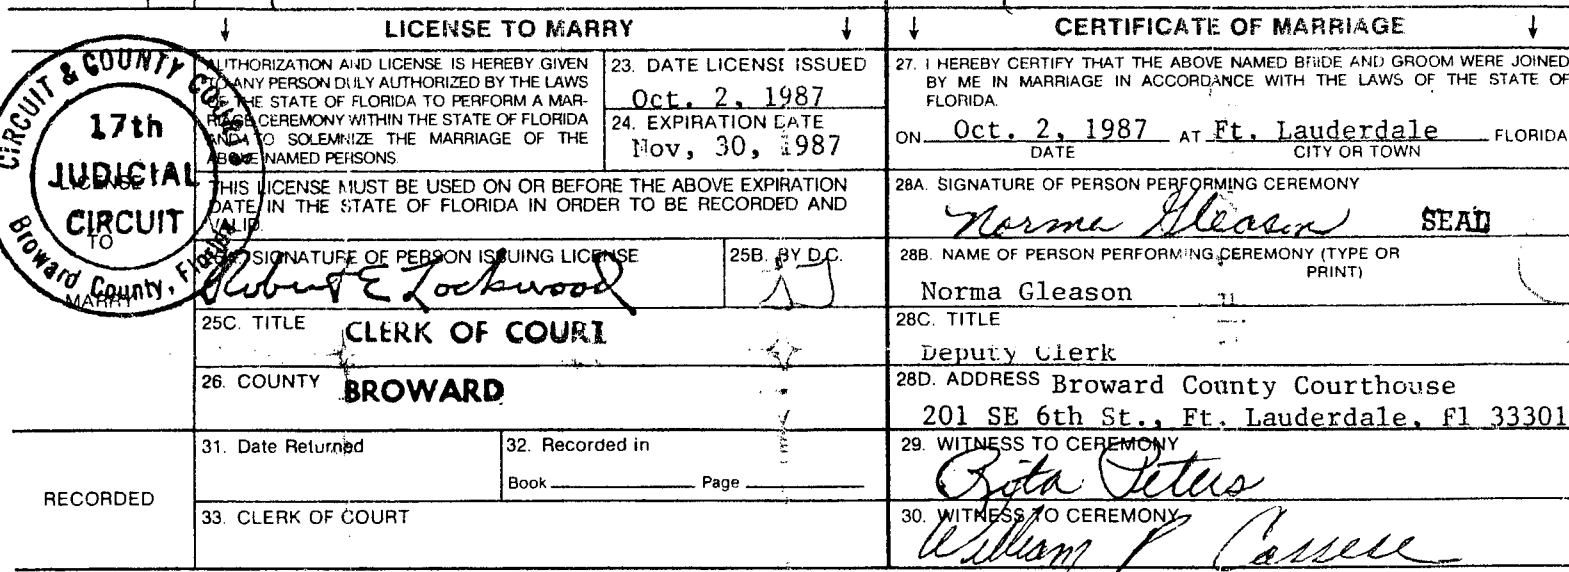 LICENSE TO MARRY
AUTHORIZATION AND LICENSE IS HEREBY GIVEN
TO ANY PERSON DULY AUTHORIZED BY THE LAWS
OF THE STATE OF FLORIDA TO PERFORM A MAR-
RIAGE CEREMONY WITHIN THE STATE OF FLORIDA
AND TO SOLEMNIZE THE MARRIAGE OF THE
ABOVE NAMED PERSONS.
23. DATE LICENSE ISSUED
Oct. 2, 1987
24. EXPIRATION DATE
Nov, 30, 1987
CIRCUIT & COUNTY COURTS
17th
JUDICIAL
CIRCUIT
Broward County, Florida
LICENSE
TO
MARRY
THIS LICENSE MUST BE USED ON OR BEFORE THE ABOVE EXPIRATION
DATE IN THE STATE OF FLORIDA IN ORDER TO BE RECORDED AND
VALID.
25A. SIGNATURE OF PERSON ISSUING LICENSE
Robert E Lockwood
25B. BY D.C.
25C. TITLE CLERK OF COURT
26. COUNTY BROWARD
RECORDED
31. Date Returned
32. Recorded in
Book Page
33. CLERK OF COURT
CERTIFICATE OF MARRIAGE
27. I HEREBY CERTIFY THAT THE ABOVE NAMED BRIDE AND GROOM WERE JOINED
BY ME IN MARRIAGE IN ACCORDANCE WITH THE LAWS OF THE STATE OF
FLORIDA.
ON Oct. 2, 1987 AT Ft. Lauderdale FLORIDA
DATE CITY OR TOWN
28A. SIGNATURE OF PERSON PERFORMING CEREMONY
Norma Gleason SEAL
28B. NAME OF PERSON PERFORMING CEREMONY (TYPE OR
PRINT)
Norma Gleason
28C. TITLE
Deputy Clerk
28D. ADDRESS Broward County Courthouse
201 SE 6th St., Ft. Lauderdale, Fl 33301
29. WITNESS TO CEREMONY
Rita Peters
30. WITNESS TO CEREMONY
William P Cassese